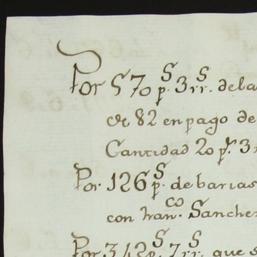 Por 570 p.s 3 rr.s de la
en 82 en pago de
Cantidad 20 p.s 3
Por 126 p.s de barias
con Fran.co Sanche
Por 342 p.s 7 rr.s que s